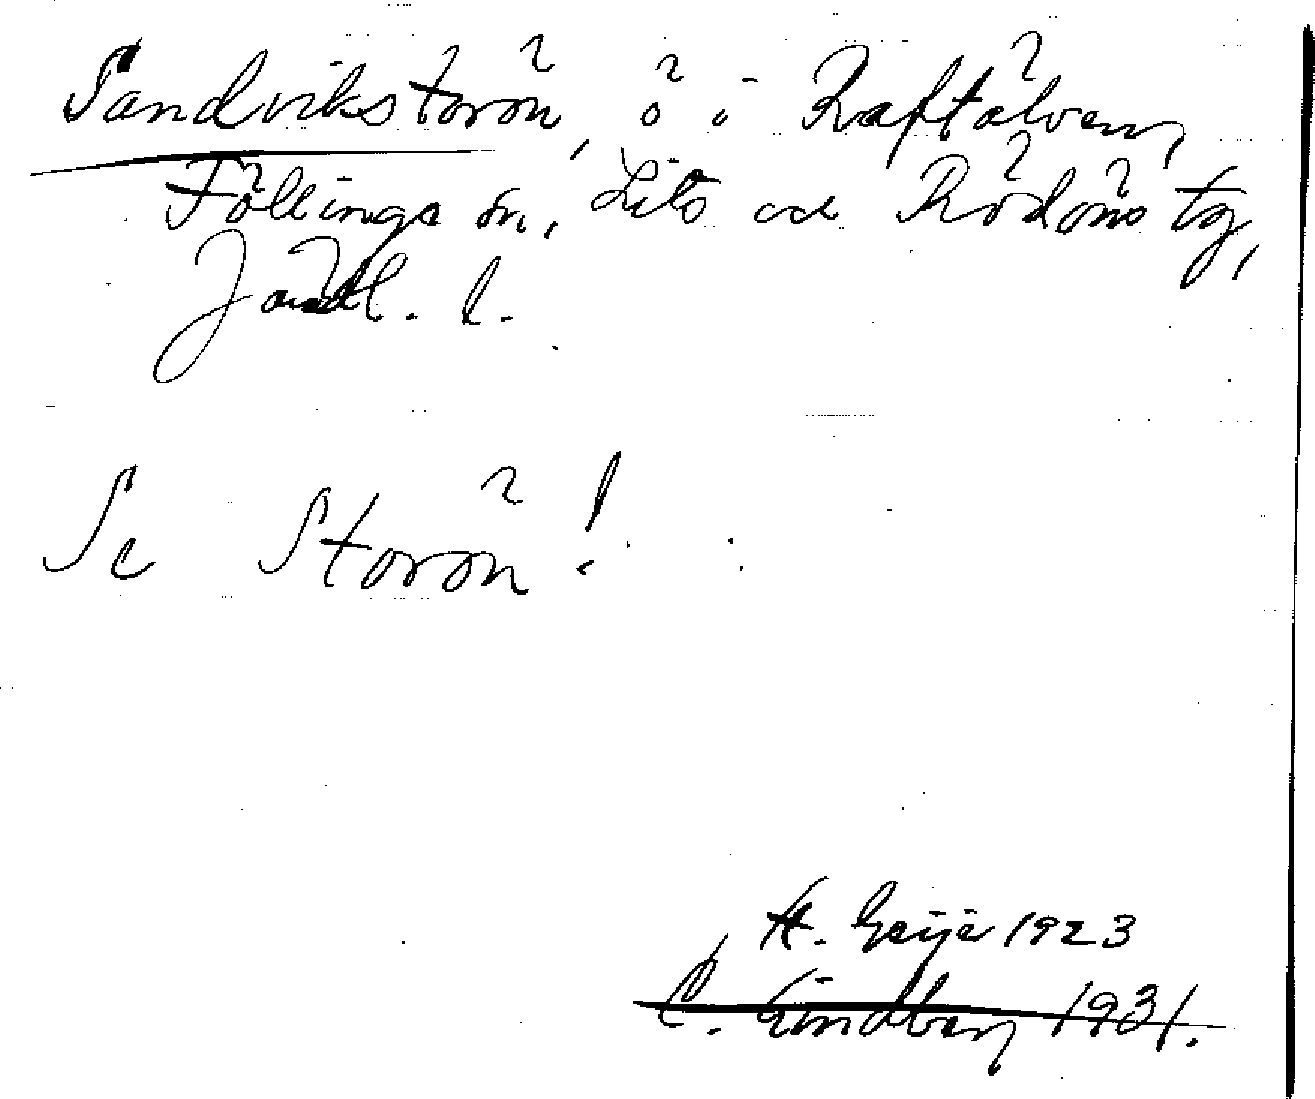 Sandvikstorön, ö i Raftälven,
Föllinge sn, Lits och Rödöns tg,
Jämtl. l.
Se Storön!
H. Geijer 1923
C. Lindberg 1931.